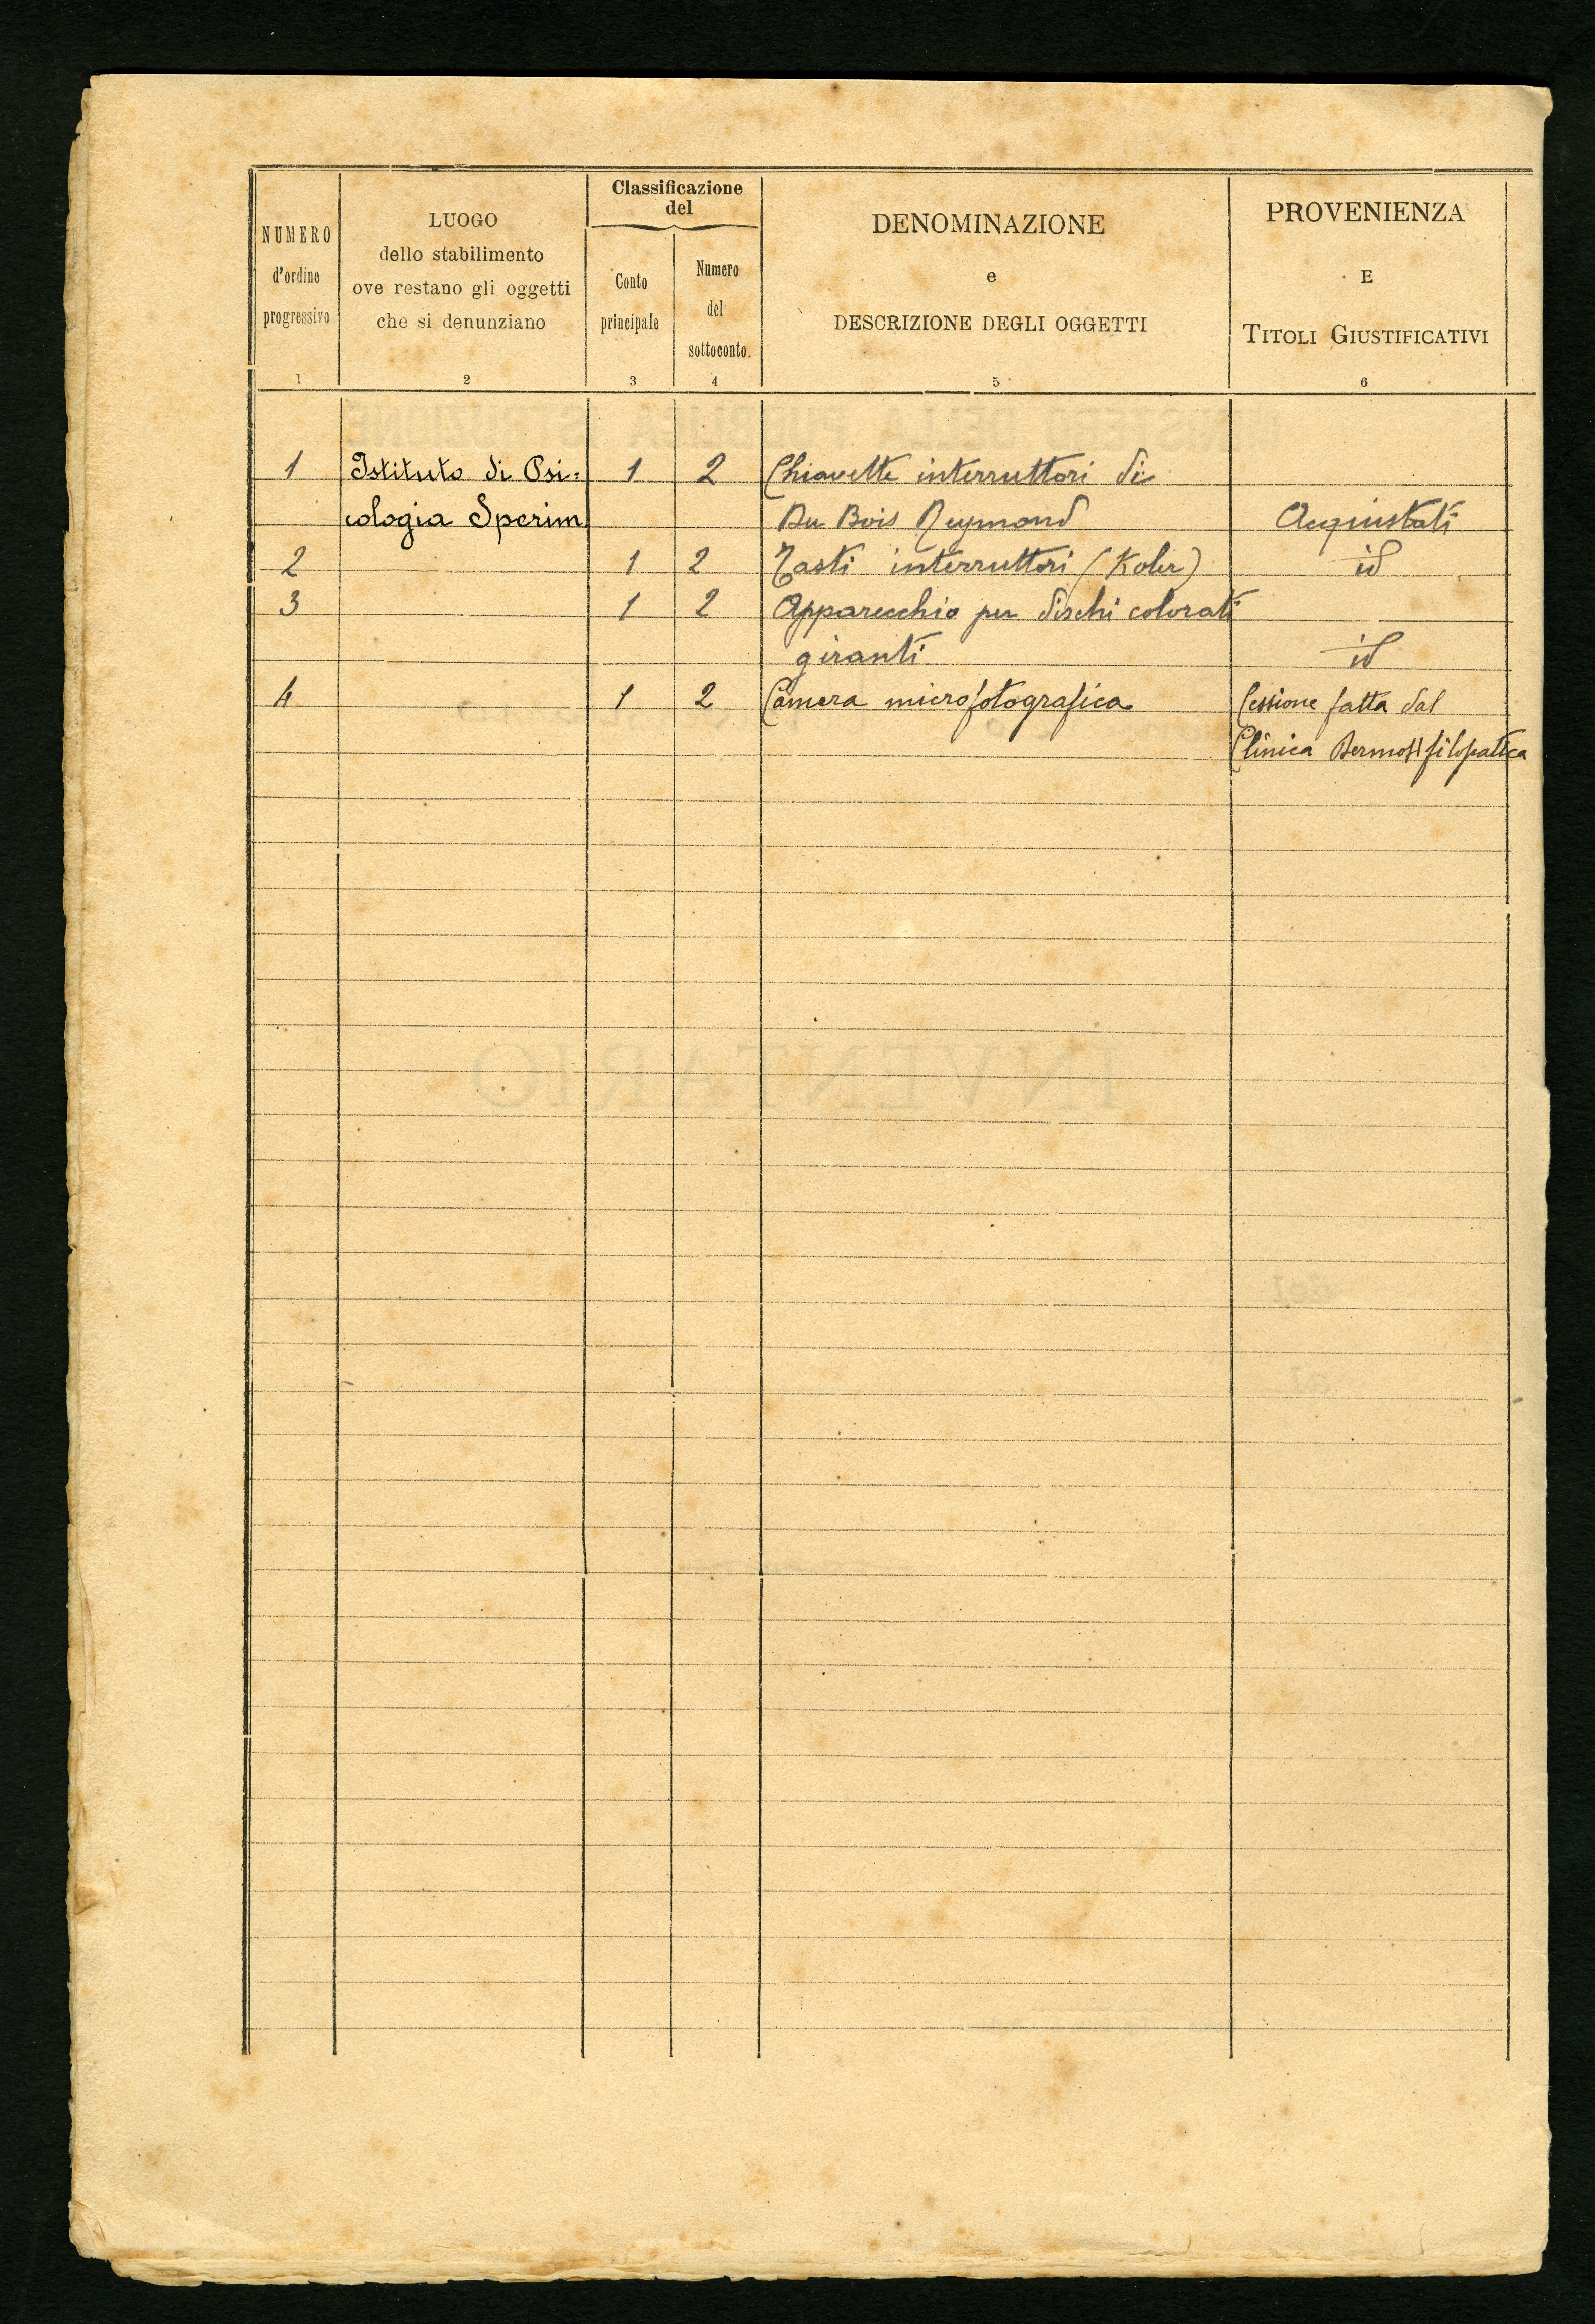 NUMERO d'ordine progressivo
LUOGO dello stabilimento ove restano gli oggetti che si denunziano
Classificazione del
Conto principale
Numero del sottoconto.
DENOMINAZIONE e DESCRIZIONE DEGLI OGGETTI
PROVENIENZA E TITOLI GIUSTIFICATIVI
1 2 3 4 5 6
1 Istituto di Psi= 1 2 Chiavette interruttori di
cologia Sperim. Du Bois Reymond Acquistati
2 1 2 Tasti interruttori (Koler) id
3 1 2 Apparecchio per dischi colorati
giranti id
4 1 2 Camera microfotografica Cessione fatta dal
Clinica
INVENTARIO